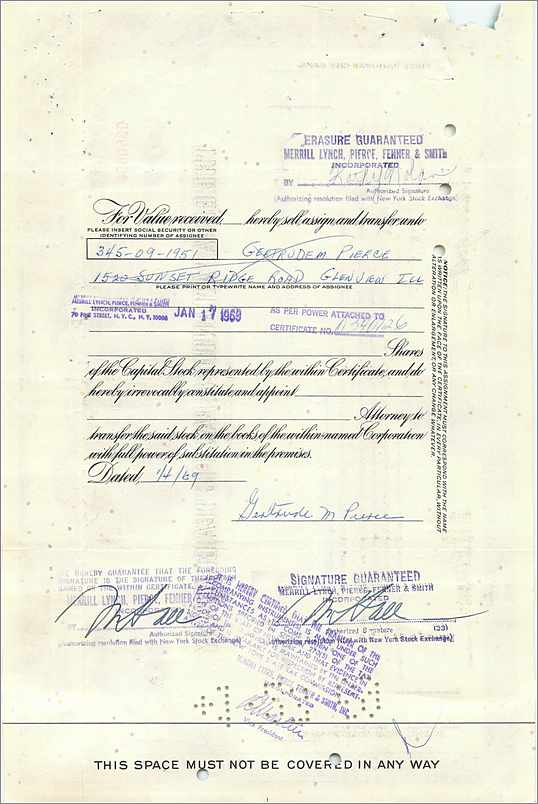 ERASURE GUARANTEED
MERRILL LYNCH, PIERCE, FENNER & SMITH
INCORPORATED
BY
Authorized Signature
(Authorizing resolution filed with New York Stock Exchange)
For Value received, hereby sell, assign, and transfer unto
PLEASE INSERT SOCIAL SECURITY OR OTHER
IDENTIFYING NUMBER OF ASSIGNEE
[redacted] GERTRUDE M PIERCE
1520 SUNSET RIDGE ROAD GLENVIEW ILL
PLEASE PRINT OR TYPEWRITE NAME AND ADDRESS OF ASSIGNEE
MERRILL LYNCH, PIERCE, FENNER & SMITH
INCORPORATED
70 PINE STREET, N.Y.C., N.Y. 10005
JAN 17 1969
AS PER POWER ATTACHED TO
CERTIFICATE NO.
Shares
of the Capital Stock represented by the within Certificate, and do
hereby irrevocably constitute and appoint
Attorney to
transfer the said stock on the books of the within-named Corporation
with full power of substitution in the premises.
Dated, 1/4/69
Gertrude M Pierce
NOTICE: THE SIGNATURE TO THIS ASSIGNMENT MUST CORRESPOND WITH THE NAME
AS WRITTEN UPON THE FACE OF THE CERTIFICATE, IN EVERY PARTICULAR, WITHOUT
ALTERATION OR ENLARGEMENT, OR ANY CHANGE WHATEVER.
WE HEREBY GUARANTEE THAT THE FOREGOING
SIGNATURE IS THE SIGNATURE OF THE
NAMED IN THE WITHIN CERTIFICATE.
MERRILL LYNCH, PIERCE, FENNER
Authorized Signature
(Authorizing resolution filed with New York Stock Exchange)
SIGNATURE GUARANTEED
MERRILL LYNCH, PIERCE, FENNER & SMITH
INCORPORATED
Authorized Signature (33)
(Authorizing resolution filed with New York Stock Exchange)
Vice President
THIS SPACE MUST NOT BE COVERED IN ANY WAY